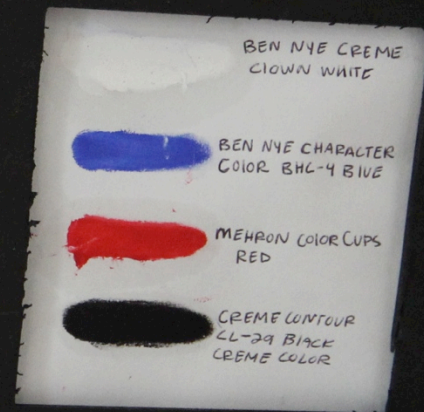 BEN NYE CREME
CLOWN WHITE
BEN NYE CHARACTER
COLOR BHC-4 BLUE
MEHRON COLOR CUPS
RED
CREME CONTOUR
CL-29 BLACK
CREME COLOR